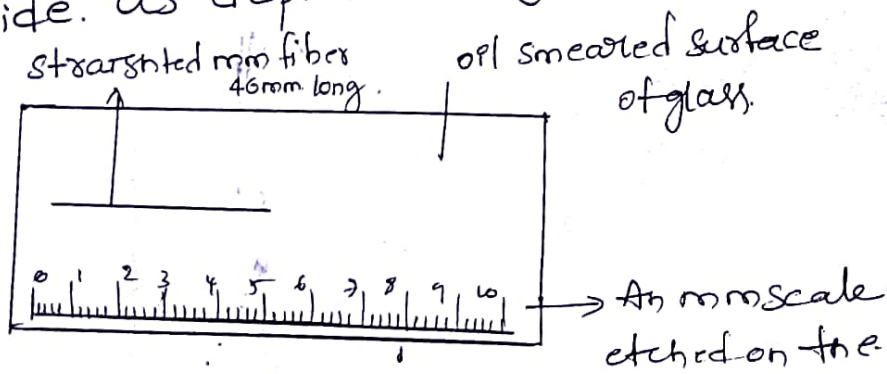 ide. as dep
strarghted mm fiber
46mm long.
oil smeared surface
of glass.
0 1 2 3 4 5 6 7 8 9 10
→ An mm scale
etched on the